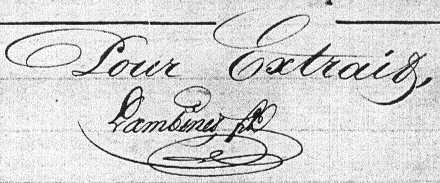 Pour Extrait,
Lambinet fils